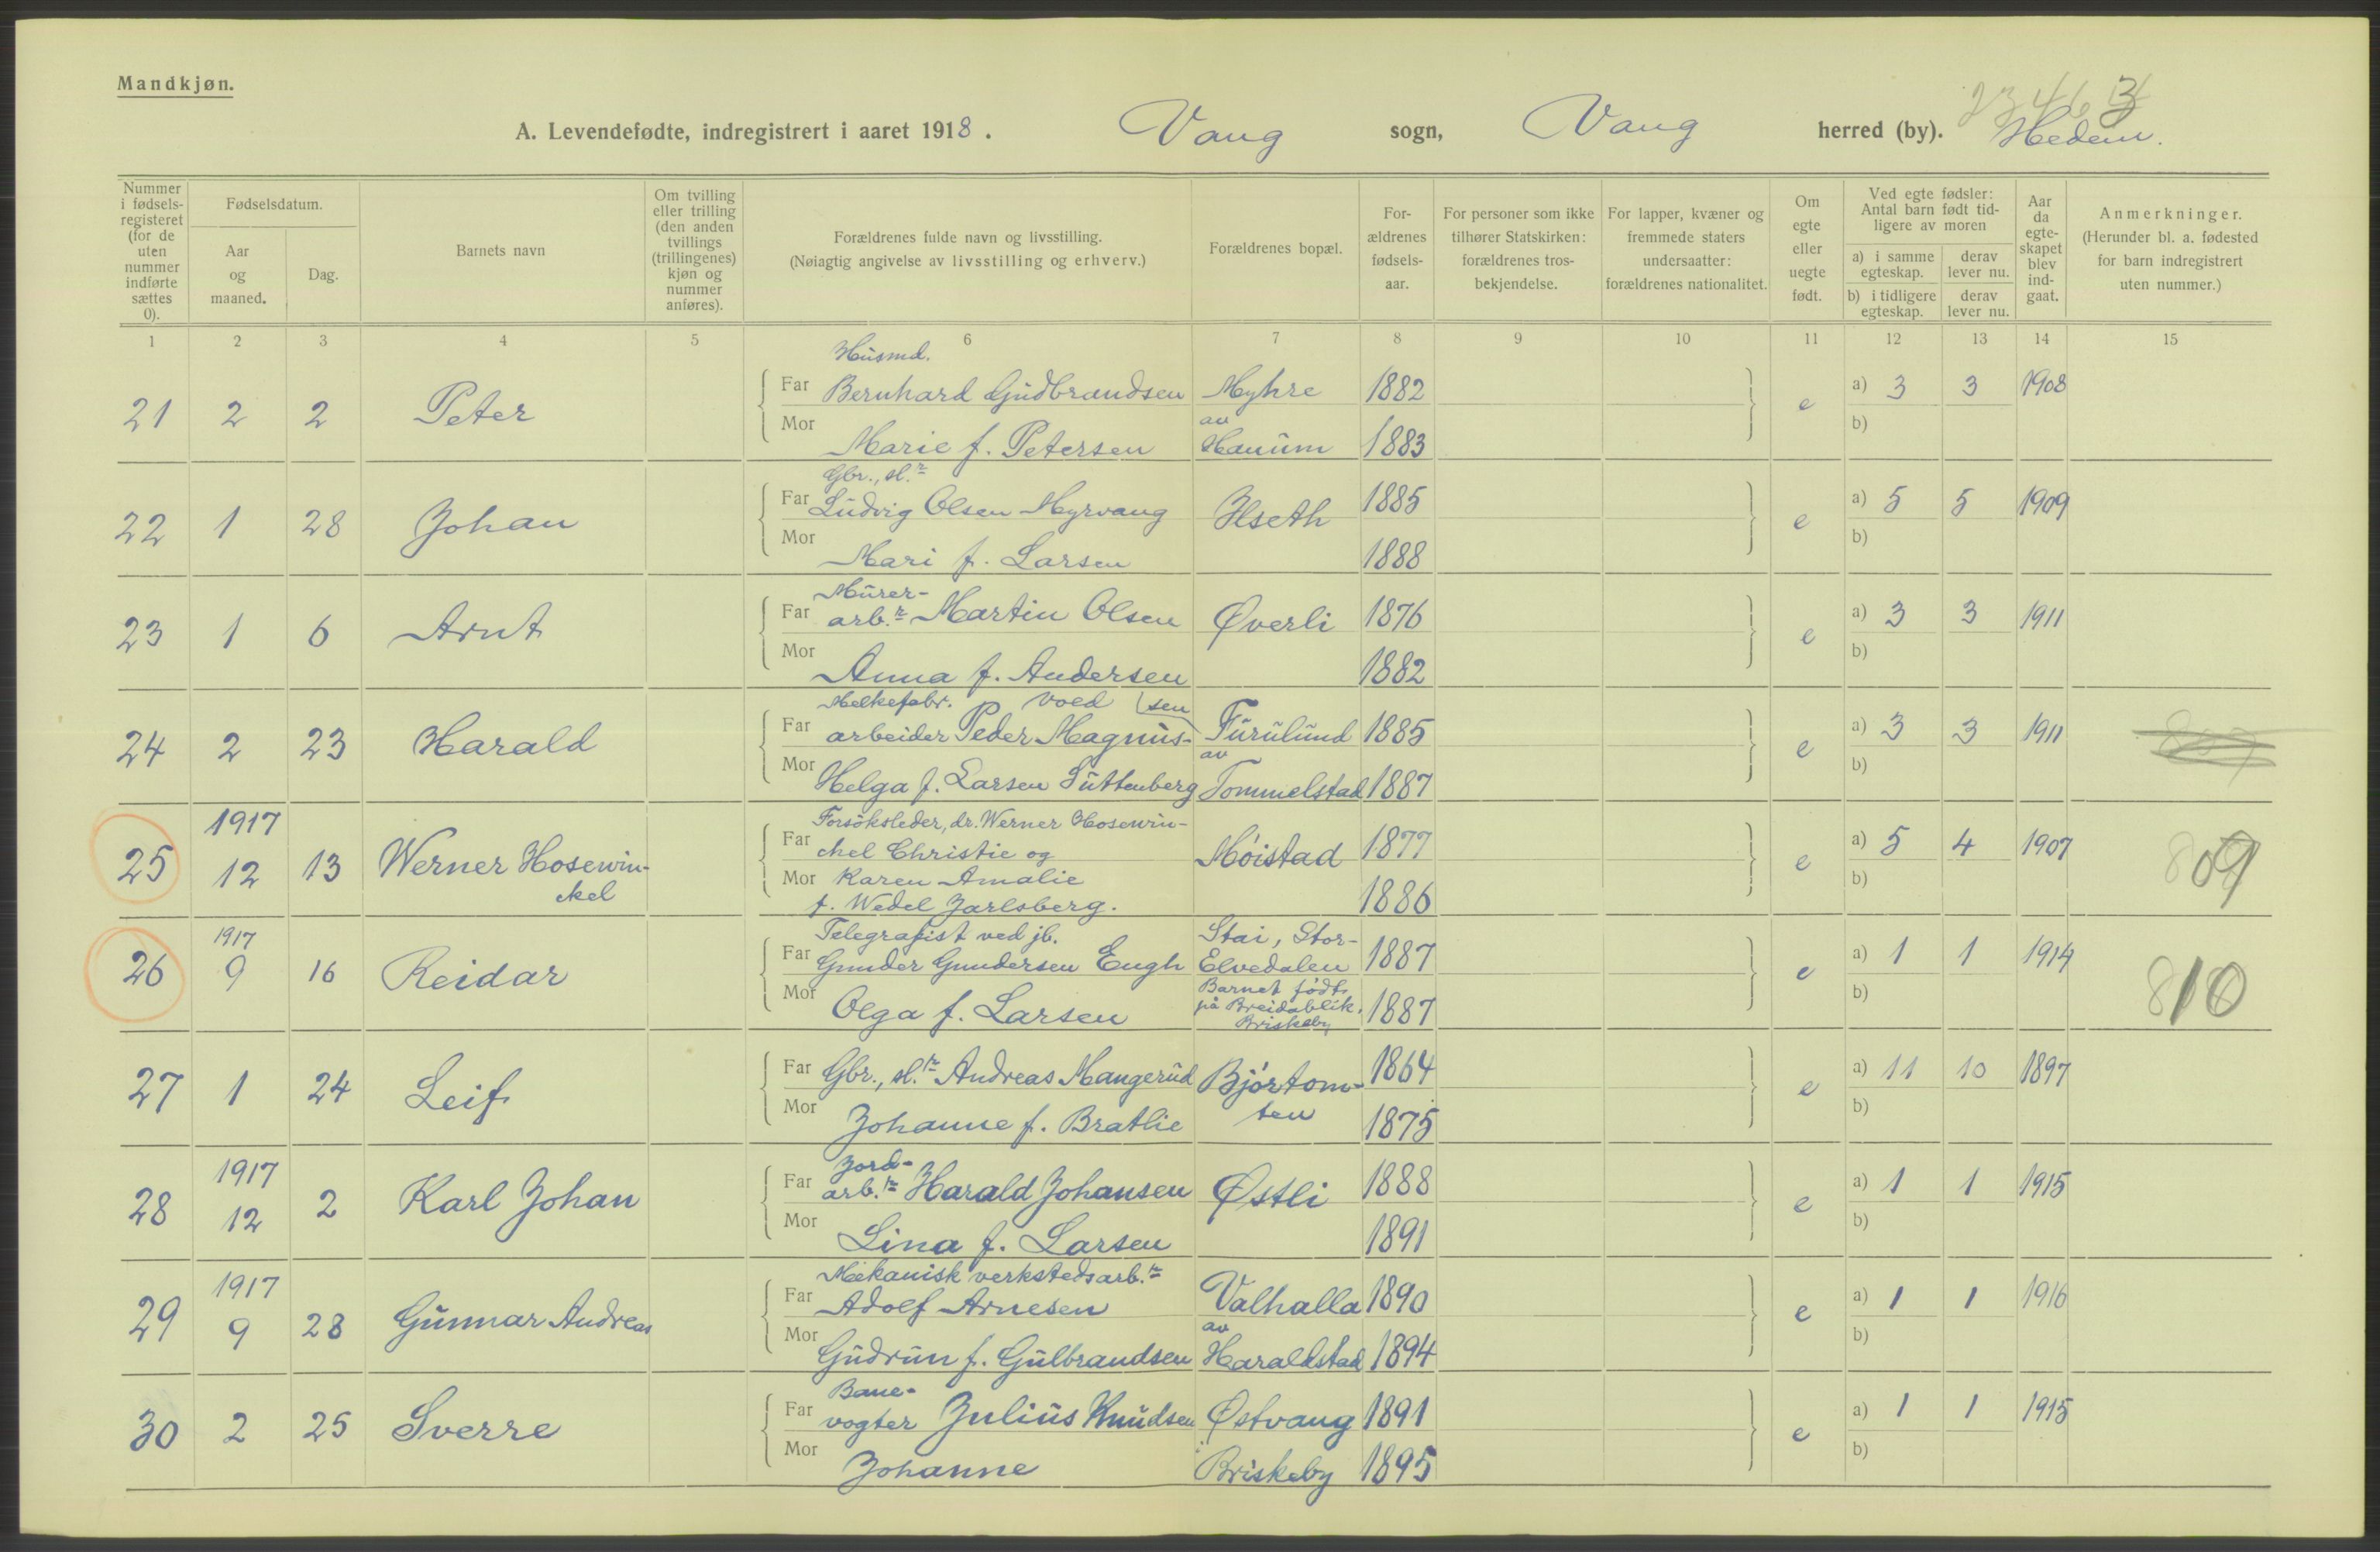 Mandkjøn.
A. Levendefødte, indregistrert i aaret 1918. Vang sogn, Vang herred (by). Hedem.
Nummer i fødselsregisteret (for de uten nummer indførte sættes 0).
Fødselsdatum.
Aar og maaned.
Dag.
Barnets navn
Om tvilling eller trilling (den anden tvillings (trillingenes) kjøn og nummer anføres).
Forældrenes fulde navn og livsstilling.
(Nøiagtig angivelse av livsstilling og erhverv.)
Forældrenes bopæl.
Forældrenes fødselsaar.
For personer som ikke tilhører Statskirken: forældrenes trosbekjendelse.
For lapper, kvæner og fremmede staters undersaatter: forældrenes nationalitet.
Om egte eller uegte født.
Ved egte fødsler: Antal barn født tidligere av moren
a) i samme egteskap. derav lever nu.
b) i tidligere egteskap. derav lever nu.
Aar da egteskapet blev indgaat.
Anmerkninger.
(Herunder bl. a. fødested for barn indregistrert uten nummer.)
1 2 3 4 5 6 7 8 9 10 11 12 13 14 15
Husmd.
21 2 2 Peter Far Bernhard Gudbrandsen Myhre 1882 e a) 3 3 1908
Mor Marie f. Petersen av Hanum 1883 b)
Gbr., sl.r
22 1 28 Johan Far Ludvig Olsen Myrvang Ilseth 1885 e a) 5 5 1909
Mor Mari f. Larsen 1888 b)
Murer-
23 1 6 Arnt Far arb.r Martin Olsen Øverli 1876 e a) 3 3 1911
Mor Anna f. Andersen 1882 b)
Melkefabr. voed sen
24 2 23 Harald Far arbeider Peder Magnus- Furulund 1885 e a) 3 3 1911
Mor Helga f. Larsen Suttenberg av Tommelstad 1887 b)
1917 Forsöksleder, dr. Werner Hosewin-
25 12 13 Werner Hosewin- Far ckel Christie og Möistad 1877 e a) 5 4 1907 809
ckel Mor Karen Amalie b)
f. Wedel Jarlsberg. 1886
1917 Telegrafist ved jb. Stai, Stor-
26 9 16 Reidar Far Gunder Gundersen Engh Elvedalen 1887 e a) 1 1 1914 810
Mor Olga f. Larsen Barnet födt på Breidablik, Briskeby 1887 b)
27 1 24 Leif Far Gbr., sl.r Andreas Mangerud Björtom- 1864 e a) 11 10 1897
Mor Johanne f. Bratlie ten 1875 b)
1917 Jord-
28 12 2 Karl Johan Far arb.r Harald Johansen Østli 1888 e a) 1 1 1915
Mor Lina f. Larsen 1891 b)
1917 Mekanisk verkstedsarb.r
29 9 28 Gunnar Andreas Far Adolf Arnesen Valhalla 1890 e a) 1 1 1916
Mor Gudrun f. Gulbrandsen av Haraldstad 1894 b)
Bane-
30 2 25 Sverre Far vogter Julius Knudsen Østvang 1891 e a) 1 1 1915
Mor Johanne Briskeby 1895 b)